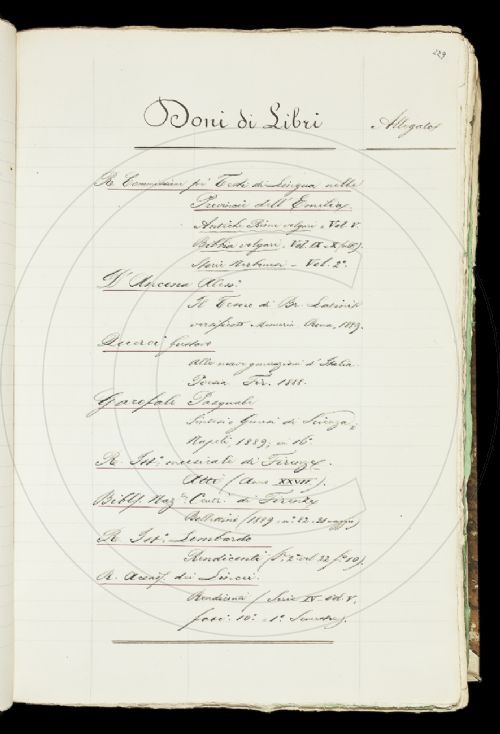 229
Doni di Libri
Allegato
R. Commissione pei Testi di Lingua nelle
Provincie dell'Emilia
Antiche Rime volgari. Vol. V.
Bibbia volgare. Vol. IX - X
Storie Nerbonesi - Vol. 2º
D'Ancona Aless.
Il Tesoro di Br. Latini
versificato. Memoria. Roma, 1889.
Alle nuove generazioni d'Italia
Poesia Fir. 1888.
Garofalo Pasquale
di Scienza
Napoli, 1889, in 16º
R. Ist. musicale di Firenze
Atti (Anno XXVII).
Bibl. Naz. Centr. di Firenze
Bollettino (1889 ni. 82.
R. Ist. Lombardo
Rendiconti (S. 2ª vol. 22 fº 10).
R. Accad. dei Lincei.
Rendiconti (Serie IV. Vol. V.
fasc. 10º - 1º Semestre).